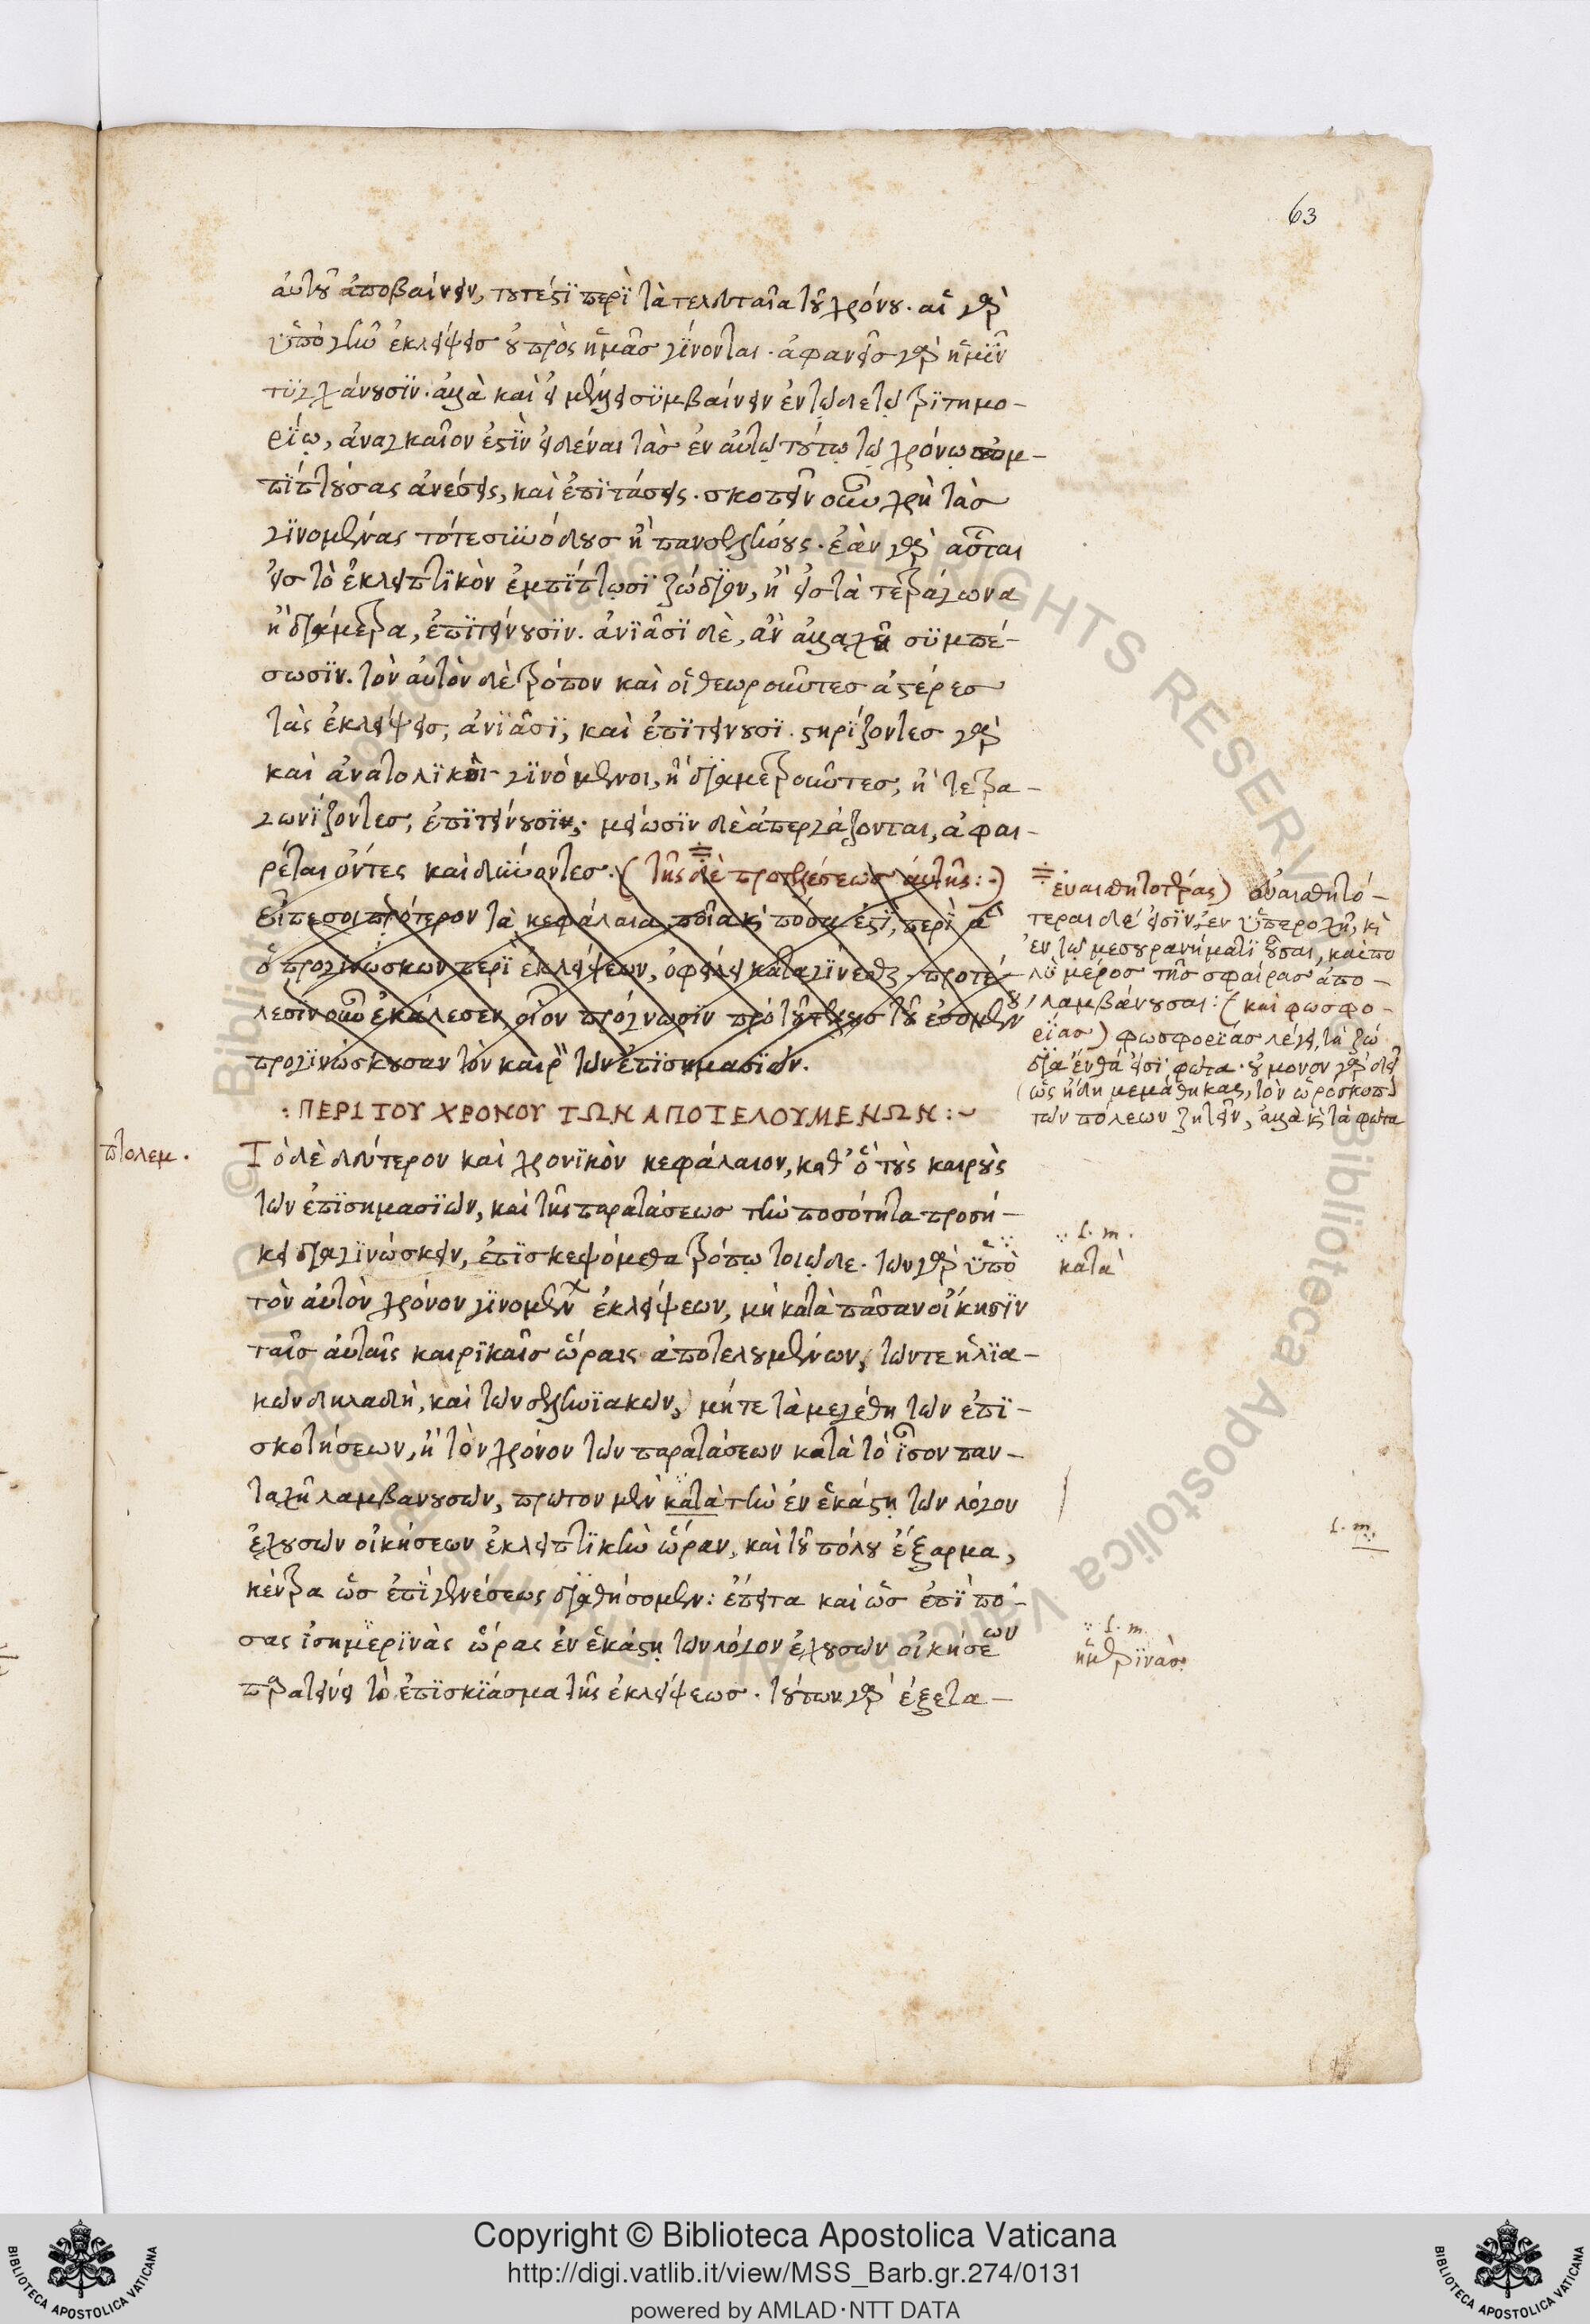 63
αὐτοῦ ἀποβαίνειν, τουτέστι περὶ τὰ τελευταῖα τοῦ χρόνου. αἱ γὰρ
ὑπὸ γῆν ἐκλείψεις οὐ πρὸς ἡμᾶς γίνονται. ἀφανεῖς γὰρ ἡμῖν
τυγχάνουσιν. ἀλλὰ καὶ εἰ μέλλει συμβαίνειν ἐν τῷδε τῷ τριτημο-
ρίῳ, ἀναγκαῖον ἐστὶν εἰδέναι τὰς ἐν αὐτῷ τούτῳ τῷ χρόνῳ συμ-
πιπτούσας ἀνέσεις, καὶ ἐπιτάσεις. σκοπεῖν οὖν χρὴ τὰς
γινομένας τότε συνόδους ἢ πανσελήνους. ἐὰν γὰρ αὗται
εἰς τὸ ἐκλειπτικὸν ἐμπίπτωσι ζῴδιον, ἢ εἰς τὰ τετράγωνα
ἢ διάμετρα, ἐπιτείνουσιν. ἀνιᾶσι δὲ, ἂν ἀλλαχῆ συμπέ-
σωσιν. τὸν αὐτὸν δὲ τρόπον καὶ οἱ θεωροῦντες ἀστέρες
τὰς ἐκλείψεις, ἀνιᾶσι, καὶ ἐπιτείνουσι. στηρίζοντες γὰρ
καὶ ἀνατολικοὶ γινόμενοι, ἢ διαμετροῦντες, ἢ τετρα-
γωνίζοντες, ἐπιτείνουσιν. μείωσιν δὲ ἀπεργάζονται, ἀφαι-
ρέται ὄντες καὶ δύνοντες. (τῆς δὲ προθέσεως αὐτῆς:·)
εἶπε σοι πρότερον τὰ κεφάλαια, ποῖα κὶ πόσα ἐστὶ, περὶ ἃ
ὁ προγινώσκων περὶ ἐκλείψεων, ὀφείλει καταγίνεσθαι. προτέ-
λεσιν οὖν ἐκάλεσεν οἷον πρόγνωσιν πρὸ τοῦ τέλους τοῦ ἐσομέν
προγινώσκουσαν τὸν καιρὸ τῶν ἐπισημασιῶν.
: ΠΕΡΙ ΤΟΥ ΧΡΟΝΟΥ ΤΩΝ ΑΠΟΤΕΛΟΥΜΕΝΩΝ :~
πτολεμ.
Τὸ δὲ δεύτερον καὶ χρονικὸν κεφάλαιον, καθ' ὃ τοὺς καιροὺς
τῶν ἐπισημασιῶν, καὶ τῆς παρατάσεως τὴν ποσότητα προσή-
κει διαγινώσκειν, ἐπισκεψόμεθα τρόπῳ τοιῷδε. τῶν γὰρ ὑπὸ
τὸν αὐτὸν χρόνον γινομέν ἐκλείψεων, μὴ κατὰ πᾶσαν οἴκησιν
ταῖς αὐταῖς καιρικαῖς ὥραις ἀποτελουμένων, τῶν τε ἡλια-
κῶν δηλαδὴ, καὶ τῶν σεληνιακῶν, μήτε τὰ μεγέθη τῶν ἐπι-
σκοτήσεων, ἢ τὸν χρόνον τῶν παρατάσεων κατὰ τὸ ἶσον παν-
ταχῆ λαμβανουσῶν, πρῶτον μὲν κατὰ τὴν ἐν ἑκάστῃ τῶν λόγον
ἐχουσῶν οἰκήσεων ἐκλειπτικὴν ὥραν, καὶ τοῦ πόλου ἔξαρμα,
κέντρα ὡς ἐπὶ γενέσεως διαθήσομεν: ἔπειτα καὶ ὡς ἐπὶ πό-
σας ἰσημερινὰς ὥρας ἐν ἑκάστῃ τῶν λόγον ἐχουσῶν οἰκήσεων
παρατείνει τὸ ἐπισκίασμα τῆς ἐκλείψεως. τούτων γὰρ ἐξετα-
εὐαισθητοτέρας) εὐαισθητό-
τεραι δέ εἰσιν, ἐν ὑπεροχῆ, κὶ
ἐν τῷ μεσουρανήματι οὖσαι, καὶ πο
λὺ μέρος τῆς σφαίρας ἀπο-
λαμβάνουσαι: (καὶ φωσφο-
ρίας) φωσφορίας λέγει, τὰ ζώ
δια ἔνθα εἰσὶ φῶτα. οὐ μόνον γὰρ δεῖ
(ὡς ἤδη μεμάθηκας, τὸν ὡροσκοπὸ
τῶν πόλεων ζητεῖν, ἀλλὰ κὶ τὰ φῶτα
l. m.
κατὰ
l. m.
l. m.
ἡμερινὰς
© Biblioteca Apostolica Vaticana ALL RIGHTS RESERVED
Copyright © Biblioteca Apostolica Vaticana
http://digi.vatlib.it/view/MSS_Barb.gr.274/0131
powered by AMLAD·NTT DATA
BIBLIOTECA APOSTOLICA VATICANA
BIBLIOTECA APOSTOLICA VATICANA